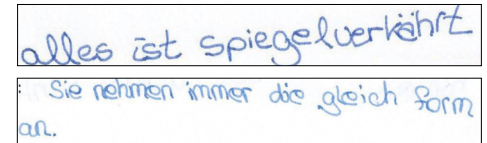 alles ist spiegelverkährt
: Sie nehmen immer die gleich form
an.